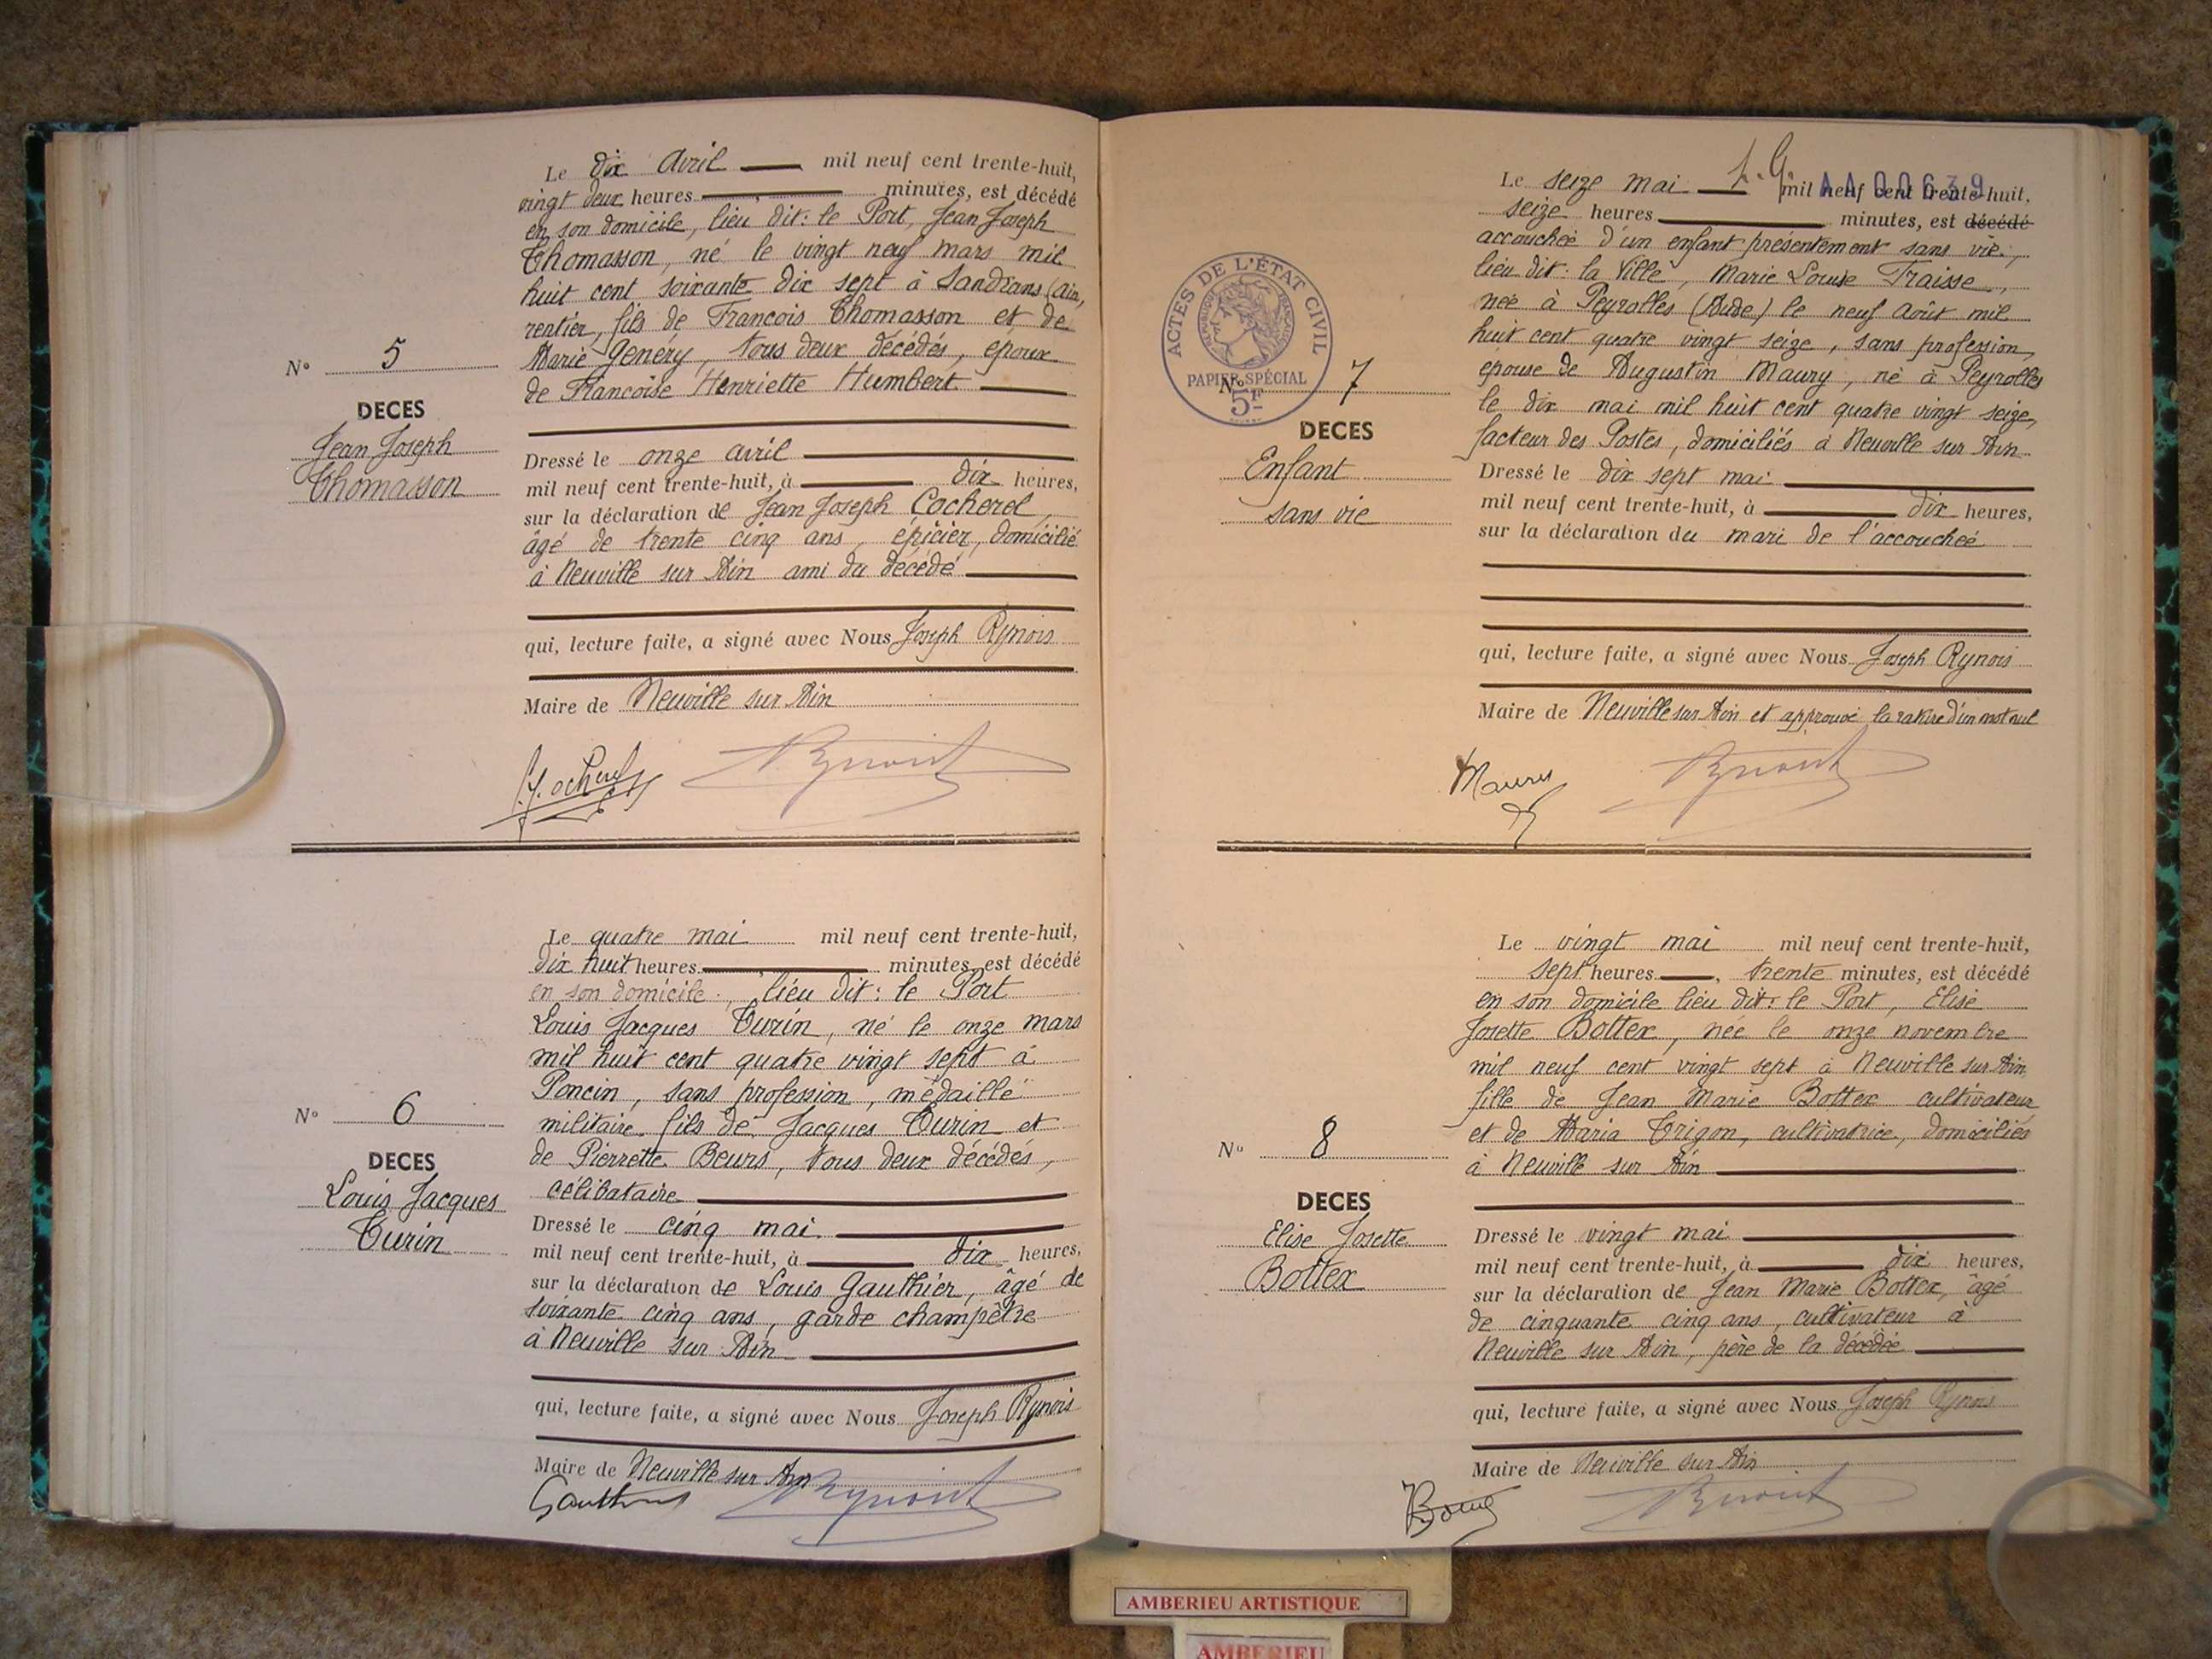 Le dix avril mil neuf cent trente-huit,
vingt deux heures minutes, est décédé
en son domicile, lieu dit: le Port, Jean Joseph
Thomasson, né le vingt neuf mars mil
huit cent soixante dix sept à Sandrans (Ain,
rentier, fils de François Thomasson et de
Marie Genéry, tous deux décédés, époux
de Françoise Henriette Humbert
Nº 5
DECES
Jean Joseph
Thomasson
Dressé le onze avril
mil neuf cent trente-huit, à dix heures,
sur la déclaration de Jean Joseph Cocherel,
âgé de trente cinq ans, épicier, domicilié
à Neuville sur Ain ami du décédé
qui, lecture faite, a signé avec Nous Joseph Rynois
Maire de Neuville sur Ain
Le quatre mai mil neuf cent trente-huit,
dix huit heures minutes, est décédé
en son domicile, lieu dit: le Port
Louis Jacques Turin, né le onze mars
mil huit cent quatre vingt sept à
Poncin, sans profession, médaillé
militaire fils de Jacques Turin et
de Pierrette Beurs, tous deux décédés,
célibataire
Nº 6
DECES
Louis Jacques
Turin
Dressé le cinq mai
mil neuf cent trente-huit, à dix heures,
sur la déclaration de Louis Gauthier, âgé de
soixante cinq ans, garde champêtre
à Neuville sur Ain
qui, lecture faite, a signé avec Nous Joseph Rynois
Maire de Neuville sur Ain
AA00639
Le seize mai mil neuf cent trente-huit,
seize heures minutes, est décédé
accouchée d'un enfant présentement sans vie,
lieu dit: la Ville, Marie Louise Traisse,
née à Peyrolles (Aude) le neuf Août mil
huit cent quatre vingt seize, sans profession,
épouse de Augustin Maury, né à Peyrolles
le dix mai mil huit cent quatre vingt seize,
facteur des Postes, domiciliés à Neuville sur Ain
ACTES DE L'ÉTAT CIVIL
RÉPUBLIQUE FRANÇAISE
PAPIER SPÉCIAL
5F
Nº 7
DECES
Enfant
sans vie
Dressé le dix sept mai
mil neuf cent trente-huit, à dix heures,
sur la déclaration du mari de l'accouchée
qui, lecture faite, a signé avec Nous Joseph Rynois
Maire de Neuville sur Ain et approuvé la rature d'un mot nul
Maury
Le vingt mai mil neuf cent trente-huit,
sept heures, trente minutes, est décédé
en son domicile lieu dit: le Port, Elise
Josette Bottex, née le onze novembre
mil neuf cent vingt sept à Neuville sur Ain,
fille de Jean Marie Bottex cultivateur
et de Maria Trigon, cultivatrice, domiciliés
à Neuville sur Ain
Nº 8
DECES
Elise Josette
Bottex
Dressé le vingt mai
mil neuf cent trente-huit, à dix heures,
sur la déclaration de Jean Marie Bottex, âgé
de cinquante cinq ans, cultivateur à
Neuville sur Ain, père de la décédée
qui, lecture faite, a signé avec Nous Joseph Rynois
Maire de Neuville sur Ain
AMBERIEU ARTISTIQUE
AMBERIEU